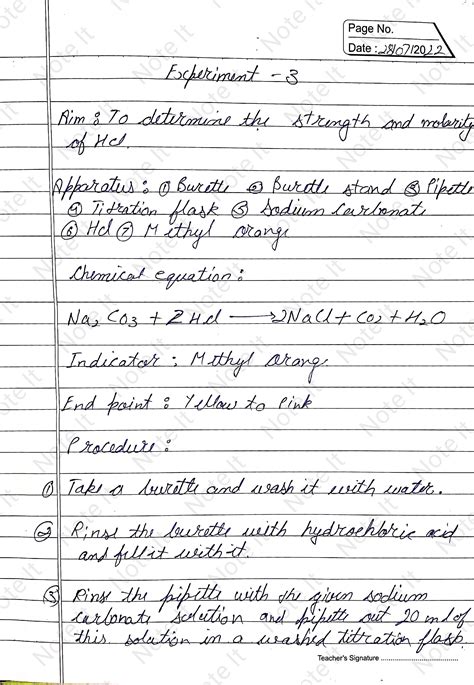 Page No.
Date : 28/07/2022
Experiment - 3
Aim : To determine the strength and molarity
of Hcl.
Apparatus : ① Burette ② Burette stand ③ Pipette
④ Titration flask ⑤ Sodium Carbonate
⑥ Hcl ⑦ Methyl orange
Chemical equation :
Na2 CO3 + 2 Hcl ⟶ 2NaCl + CO2 + H2O
Indicator : Methyl orange
End point : Yellow to Pink
Procedure :
① Take a burette and wash it with water.
② Rinse the burette with hydrochloric acid
and fill it with it.
③ Rinse the pipette with the given sodium
carbonate solution and pipette out 20 ml of
this solution in a washed titration flask.
Teacher's Signature
Note It